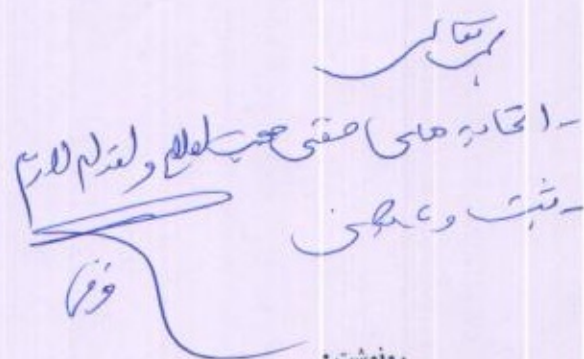 بسمه تعالی
- اتحادیه های صنفی جهت اطلاع و اقدام لازم
- ثبت و بایگانی
رونوشت: